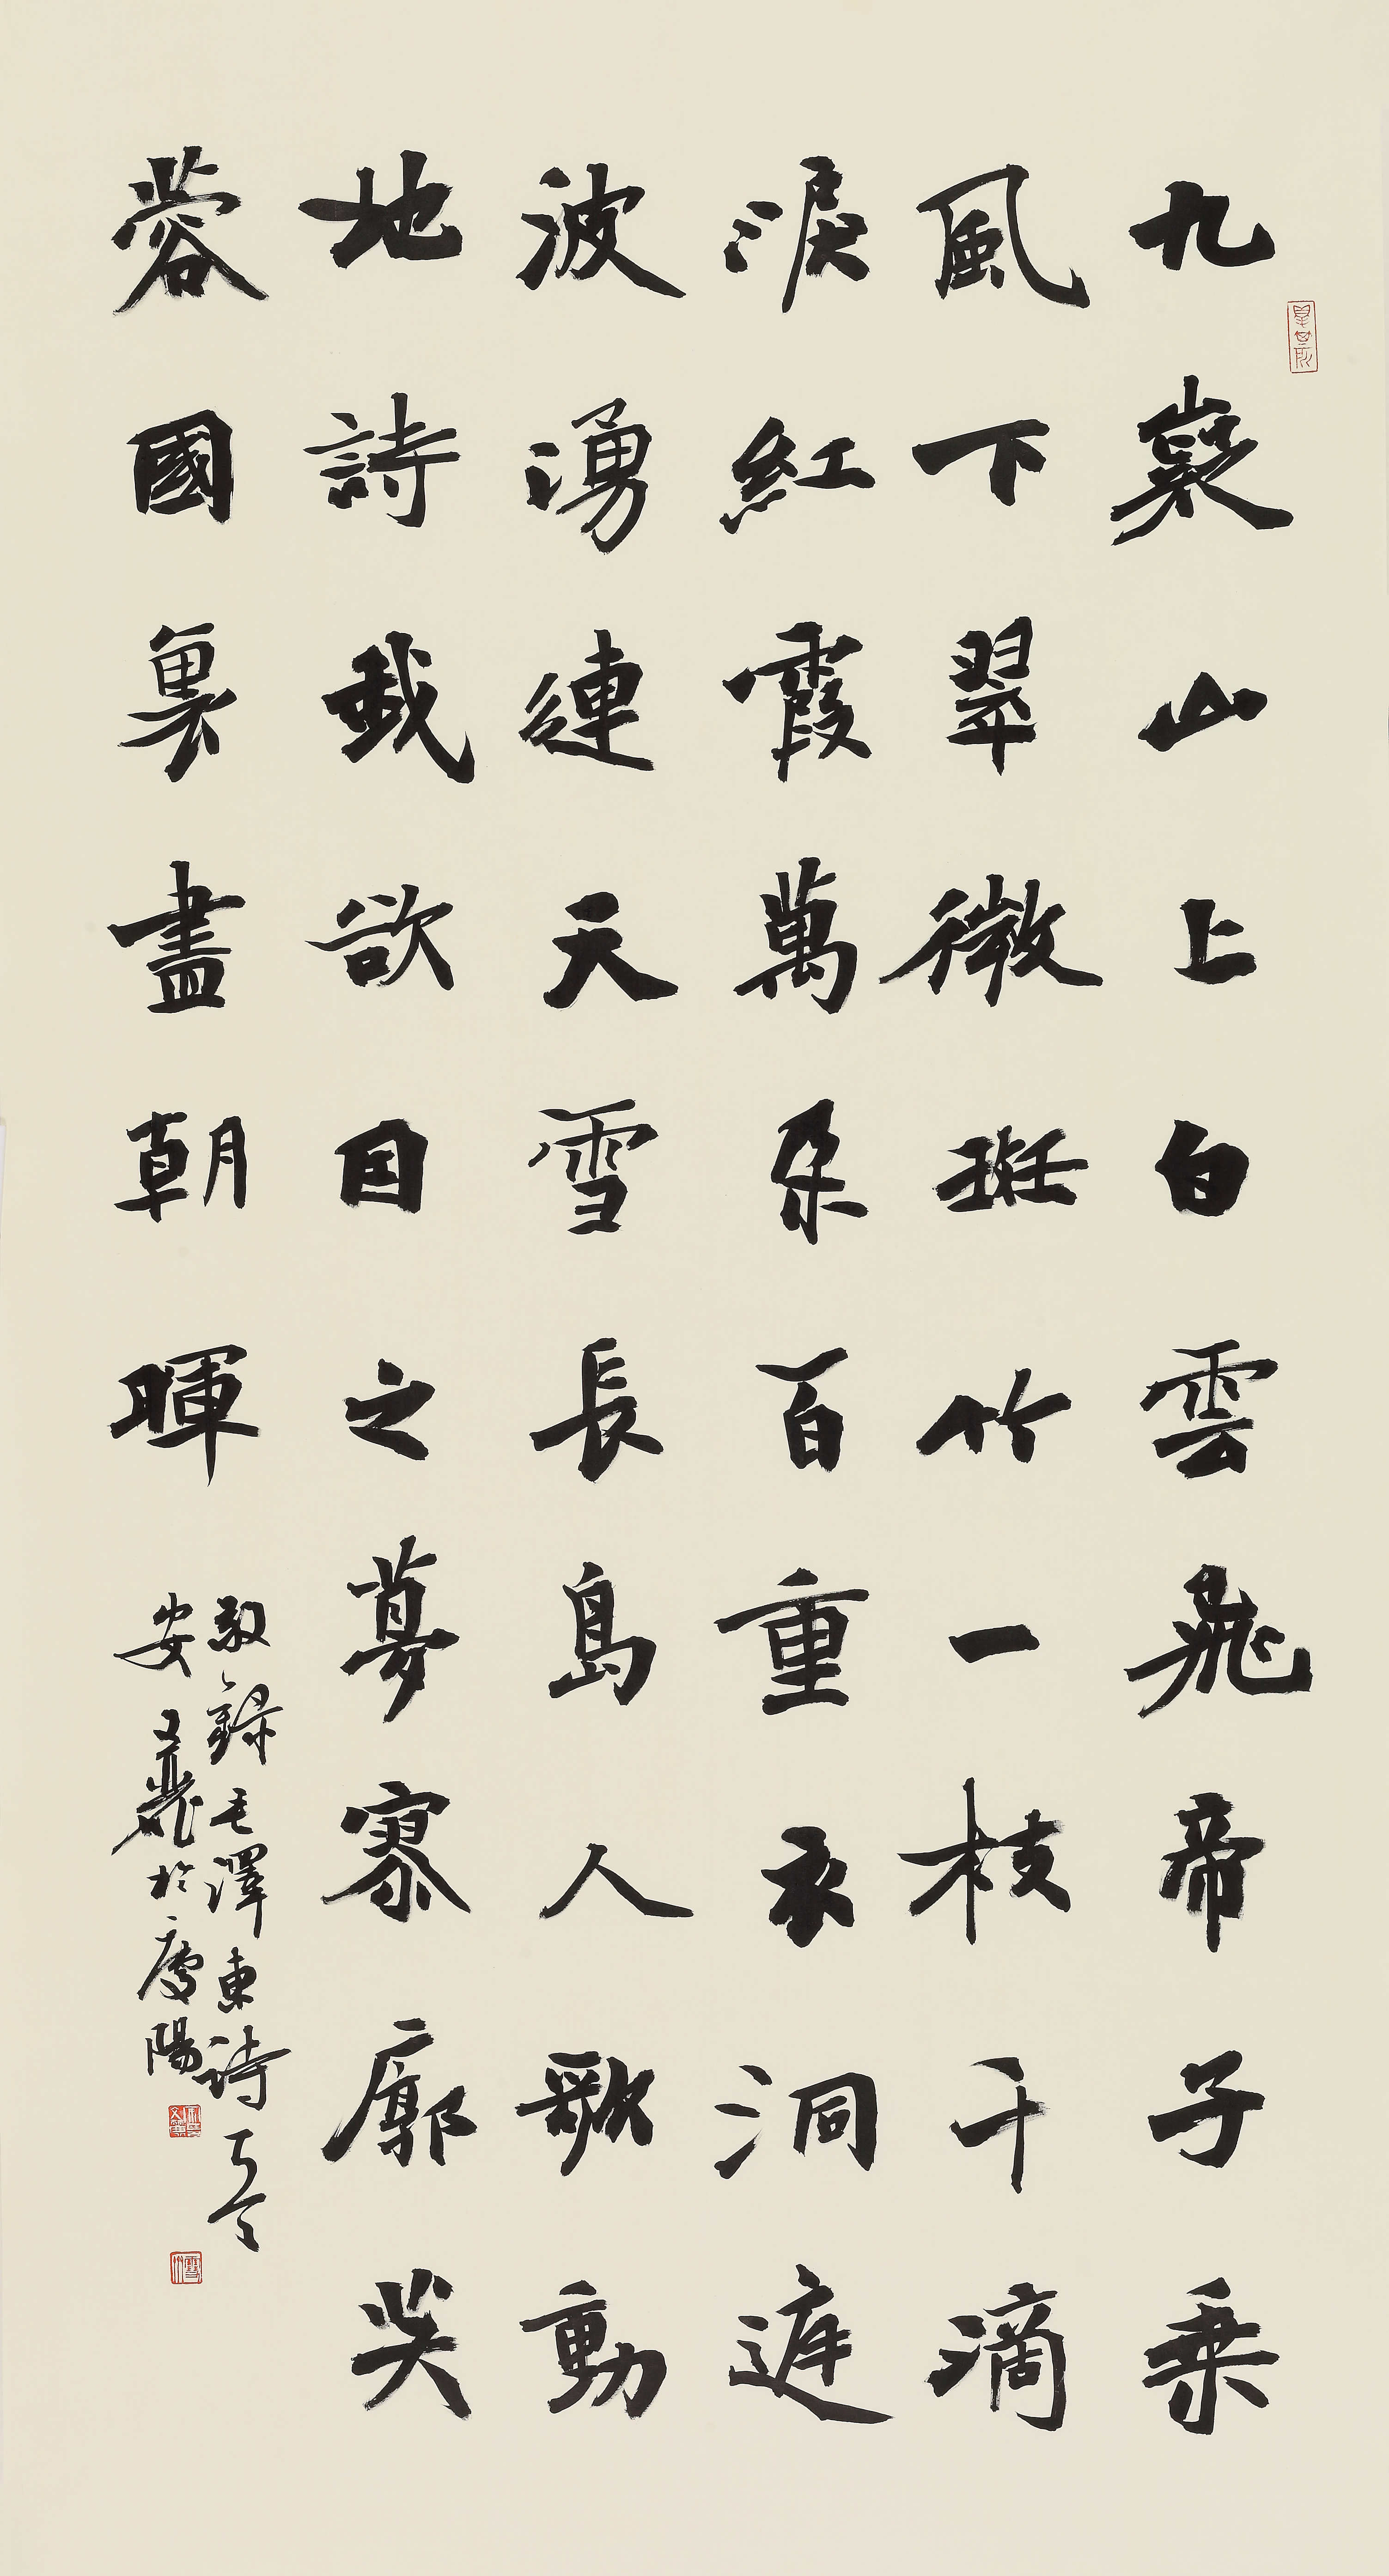 九嶷山上白雲飛帝子乘
風下翠微斑竹一枝千滴
淚紅霞萬朵百重衣洞庭
波湧連天雪長島人歌動
地詩我欲因之夢寥廓芙
蓉國裏盡朝暉
敬錄毛澤東詩
安
於慶陽